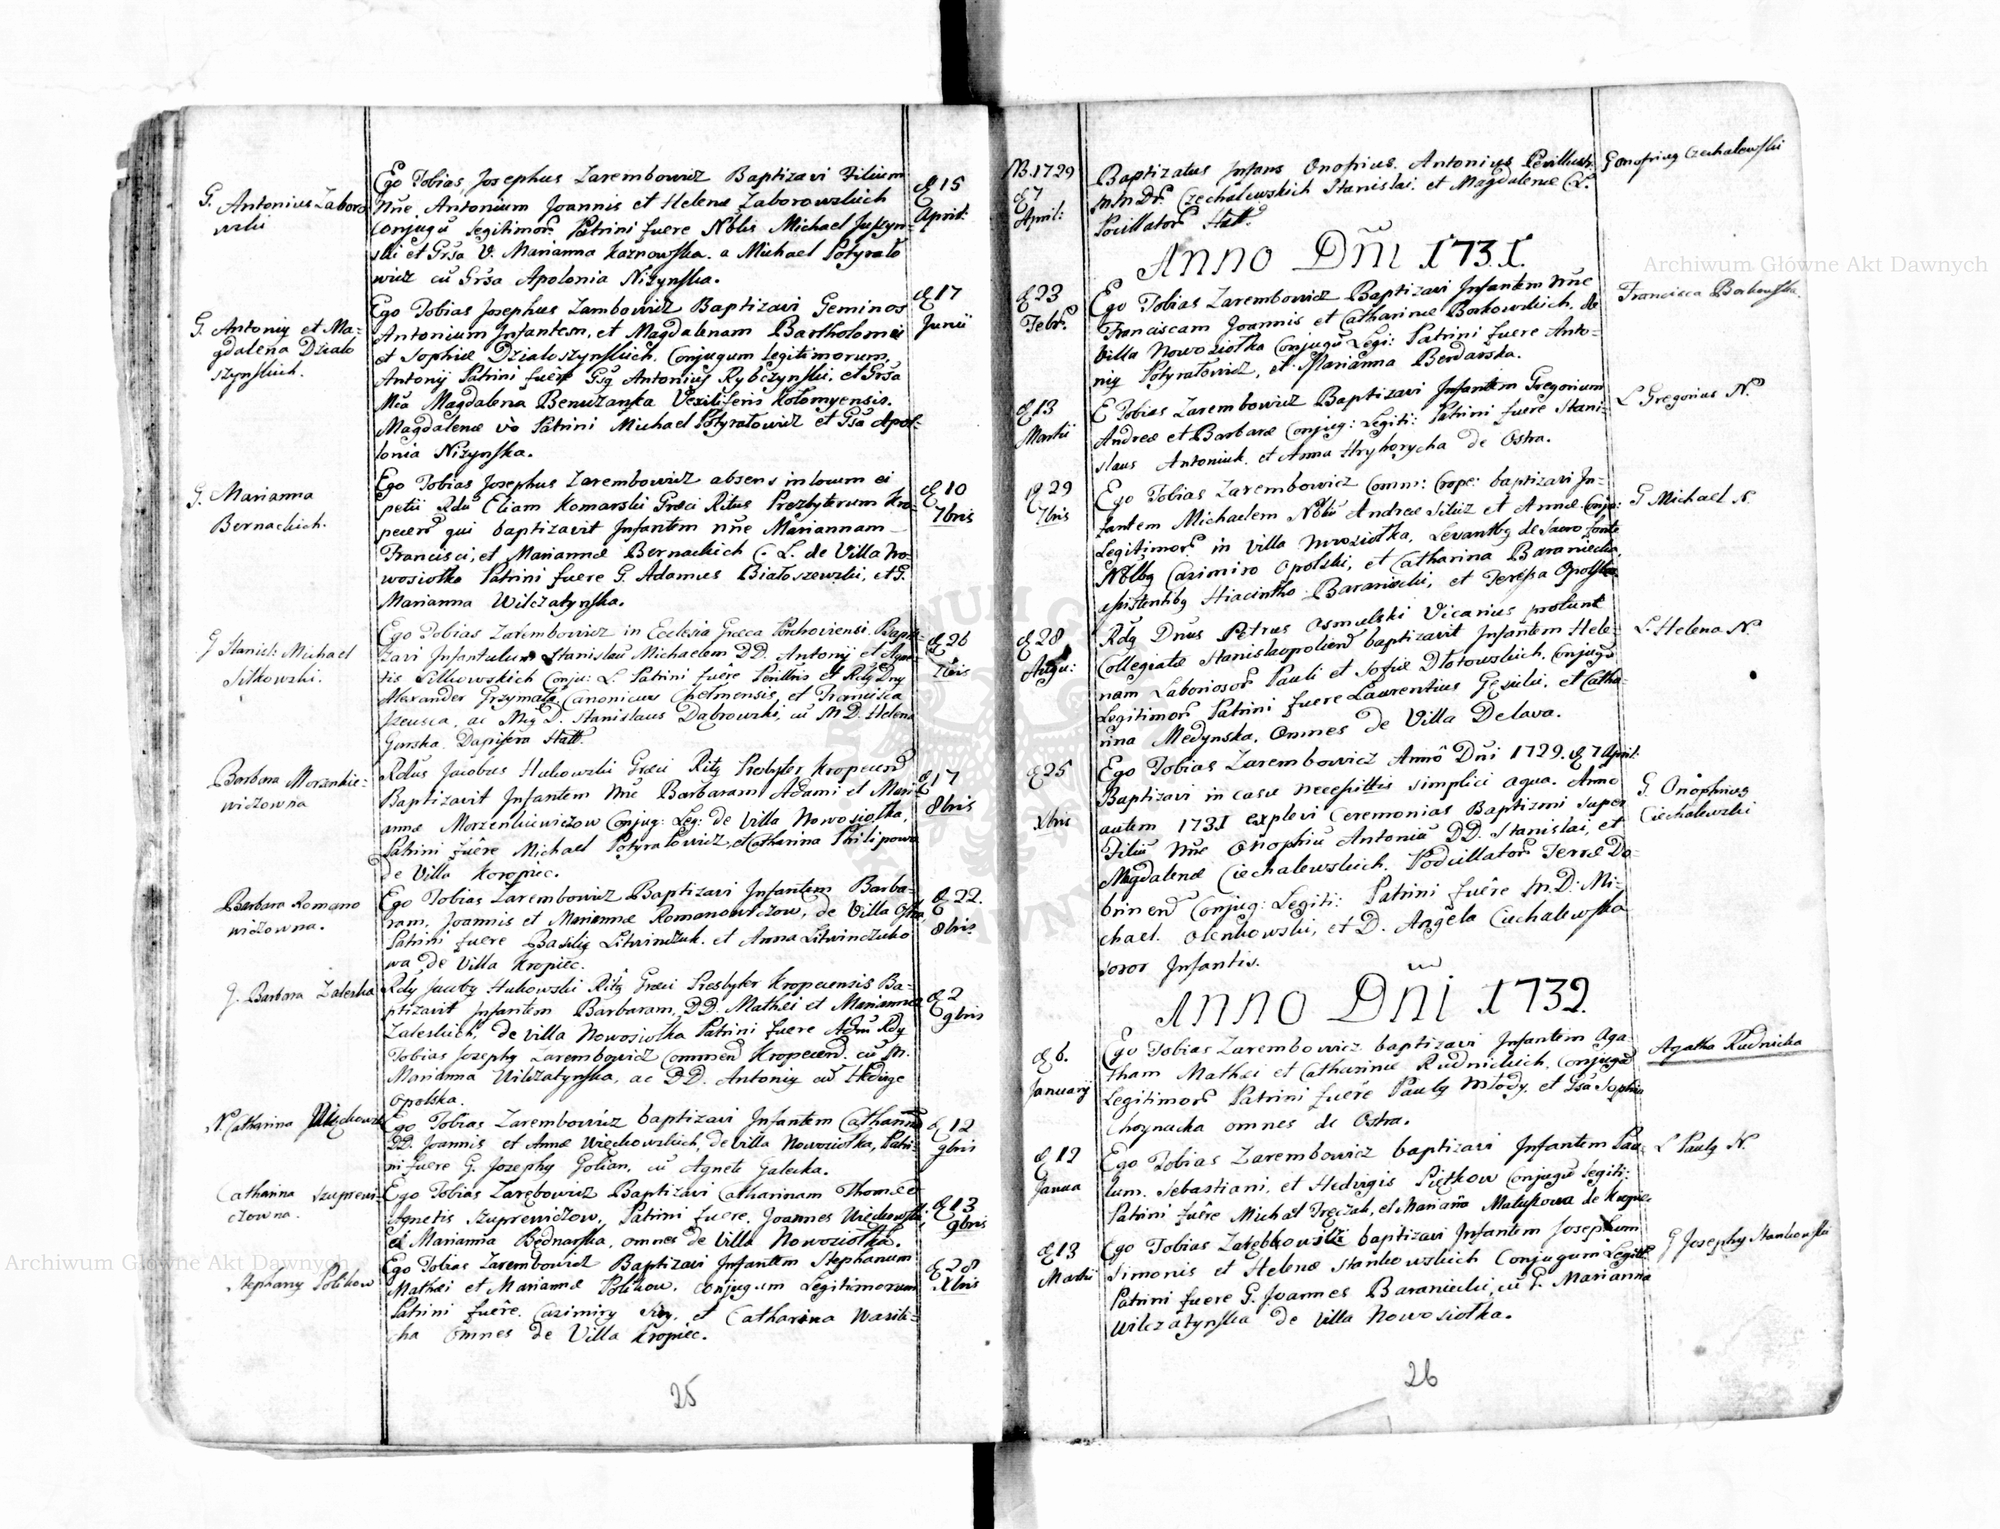 G. Antonius Zaboro
wski
Ego Tobias Josephus Zarembowicz Baptizavi Filium
nñe Antonium Joannis et Helenæ Zaborowskich
conjugū legitimor. Patrini fuere Nblis Michael
ski et Grsa V. Marianna Kaznowska. a Michael Potyrało
wicz cū Grsa Apolonia Niżynska.
d 15
April:
G. Antoniy et Ma-
gdalena Działo
szynskich.
Ego Tobias Josephus Zarmbowicz Baptizavi Geminos
Antonium Infantem, et Magdalenam Bartholomæi
et Sophiæ Działoszynskich. Conjugum legitimorum,
Antonij Patrini fuere Gsq Antonius Rybczynski, et Grsa
Mća Magdalena Benwzanska Vexiliferis Kołomyensis.
Magdalenæ vo Patrini Michael Potyratowicz et Gsa Apol-
lonia Niżynska.
d 17
Junii
G. Marianna
Bernackich.
Ego Tobias Josephus Zarembowicz absens in locum ei
petii Rdū Eliam Komarski Græci Ritus Prezbyterum Kro-
pecen qui baptizavit Infantem nñe Mariannam
Francisci, et Mariannæ Bernackich C. L. de Villa No-
wosiołka Patrini fuere G. Adamus Białoszewski, et G.
Marianna Wilczatynska.
d 10
7bris
G Stanisl: Michael
Sitkowski.
Ego Tobias Zarembowicz in Ecclesia Græca Porchoviensi Bapti-
zavi Infantulum Stanislaū Michaelem DD. Antonij et
tis Sitkowskich Conju: L Patrini fuêre Perillris et Rdq Dnq
Alexander Grzymała Canonicus Chełmensis, et Francisca
ac Mg D. Stanislaus Dąbrowski, cū M D. Helena
Gurska Dapifera Hatt.
d 26
7bris
Barbara Morzenkie-
wiczowna
Rdus Jacobus Hukowski Græci Ritq Presbyter Kropecen
Baptizavit Infantem nñe Barbaram Adami et Mari-
annæ Morzenkiewiczow Conjug: Leg: de Villa Nowosiołka,
Patrini fuêre Michael Potyratowicz, et Catharina Philipowa
de Villa Koropiec.
d 17
8bris
Barbara Romano
wiczowna.
Ego Tobias Zarembowicz Baptizavi Infantem Barba-
ram, Joannis et Mariannæ Romanowiczow, de Villa Ostra
Patrini fuere Basiliq Litwinczuk. et Anna Litwinczuko
wa de Villa Kropiec.
d 22.
8bris
G. Barbara Zaleska
Rdq Jacobq Hukowski Ritq Græci Presbyter Kropecensis Ba-
ptizavit Infantem Barbaram, DD. Mathæi et Mariannæ
Zaleskich, de villa Nowosiołka Patrini fuere Adm Rdq
Tobias Josephq Zarembowicz Commen Kropecen. cū M.
Marianna Wilczatynska, ac DD. Antoniq cū Hedvige
Opolska.
d 2
9bris
N. Catharina Więckowsk
Ego Tobias Zarembowicz baptizavi Infantem Catharinā
DD. Joannis et Annæ Więckowskich, de villa Nowosiołka, Patri-
ni fuere G. Josephq Golian, cū Agnete Galecka.
d 12
9bris
Catharina Szuprewi-
czowna.
Ego Tobias Zarębowicz Baptizavi Catharinam Thomæ et
Agnetis Szuprewiczow. Patrini fuere. Joannes Więckowski
et Marianna Bednarska, omnes de Villa Nowosiołka.
d 13
9bris
Stephanq Polikow
Ego Tobias Zarembowicz Baptizavi Infantem Stephanum
Mathæi et Mariannæ Polikow. Conjugum Legitimorum
Patrini fuêre. Casimirq et Catharina Wasili-
cha Omnes de Villa Kropiec.
d 28
Xbris
25
NB. 1729
d 7
April:
Baptizatus Infans Onofrius Antonius Perillustr.
MM DD. Czechalewskich Stanislai et Magdalenæ C. L.
Pocillator Hatt.
G Onofriuq Czechalewski
Anno Dñi 1731.
d 23
Febr.
Ego Tobias Zarembowicz Baptizavi Infantem nñe
Franciscam Joannis et Catharinæ Borkowskich, de
Villa Nowosiołka Conjugū Legi: Patrini fuere Anto-
niq Potyratowicz, et Marianna Berdarska.
Francisca Borkowska.
d 13
Martii
E Tobias Zarembowicz Baptizavi Infantem Gregorium
Andreæ et Barbaræ Conjug: Legiti: Patrini fuere Stani-
slaus Antoniuk. et Anna Hryhorycha de Ostra.
L Gregorius N.
19 29
7bris
Ego Tobias Zarembowicz Comm: Crope: baptizavi In-
fantem Michaelem Nblū Andreæ et Annæ Conju:
Legitimor in Villa Nwosiołka, Levantbq de Sacro fonte
Nblbq Casimiro Opolski, et Catharina Baraniecka,
assistentibq Hiacintho Baraniecki, et Teressa Opolska
G Michael N.
d 28
Augu:
Rdq Dnus Petrus Osmulski Vicarius protunc
Collegiatæ Stanislaopolien baptizavit Infantem Hele-
nam Laboriosor Pauli et Sofiæ Dłotowskich, Conjugū
Legitimor Patrini fuere Laurentius et Catha-
rina Medynska, Omnes de Villa Delava.
L. Helena N.
d 25
Xbris
Ego Tobias Zarembowicz Annô Dñi 1729. d 7 April:
Baptizavi in casu necessittis simplici aqua. Anno
autem 1731 explevi Ceremonias Baptizmi super
Filiū nñe Onophriū Antoniū DD. Stanislai, et
Magdalenæ Ciechalewskich, Podcillator Terræ Do-
brinen Conjug: Legiti: Patrini fuêre M. D. Mi-
chael. Olenkowski, et D. Angela Ciechalewska
soror Infantis.
G. Onophrius
Ciechalewski
Anno Dñi 1732.
d 6.
Januarij
Ego Tobias Zarembowicz baptizavi Infantem Aga-
tham Mathæi et Catharinæ Rudnickich, Conjugū
Legitimor Patrini fuêre Paulq Młody, et Gsa Sophia
Choynacka omnes de Ostra.
Agatha Rudnicka
d 12
Janua
Ego Tobias Zarembowicz baptizavi Infantem Pau-
lum. Sebastiani, et Hedvigis Piętkow Conjugū Legiti:
Patrini fuêre Michał Tręczak, et Mariana Matuszowa de Kropiec
L Paulq N.
d 13
Martii
Ego Tobias Zarębkowski baptizavi Infantem Josephum
Simonis et Helenæ Stankowskich Conjugum Legitt
Patrini fuere G. Joannes Baraniecki, cū G. Marianna
Wilczatynska de Villa Nowosiołka.
G Josephq Stankowski
26
Archiwum Główne Akt Dawnych
Archiwum Główne Akt Dawnych